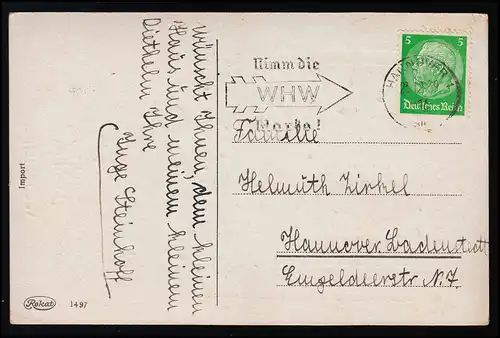 wünscht Ihnen, dem kleinen
Haus und meinem kleinen
Diethelm Ihre
Inge Steinhoff
Import
Rokat 1497
Nimm die
WHW
Marke!
HANNOVER
5 5
Deutsches Reich
Familie
Helmuth Zirkel
Hannover Badenstedt
Eingeldeerstr N. 7